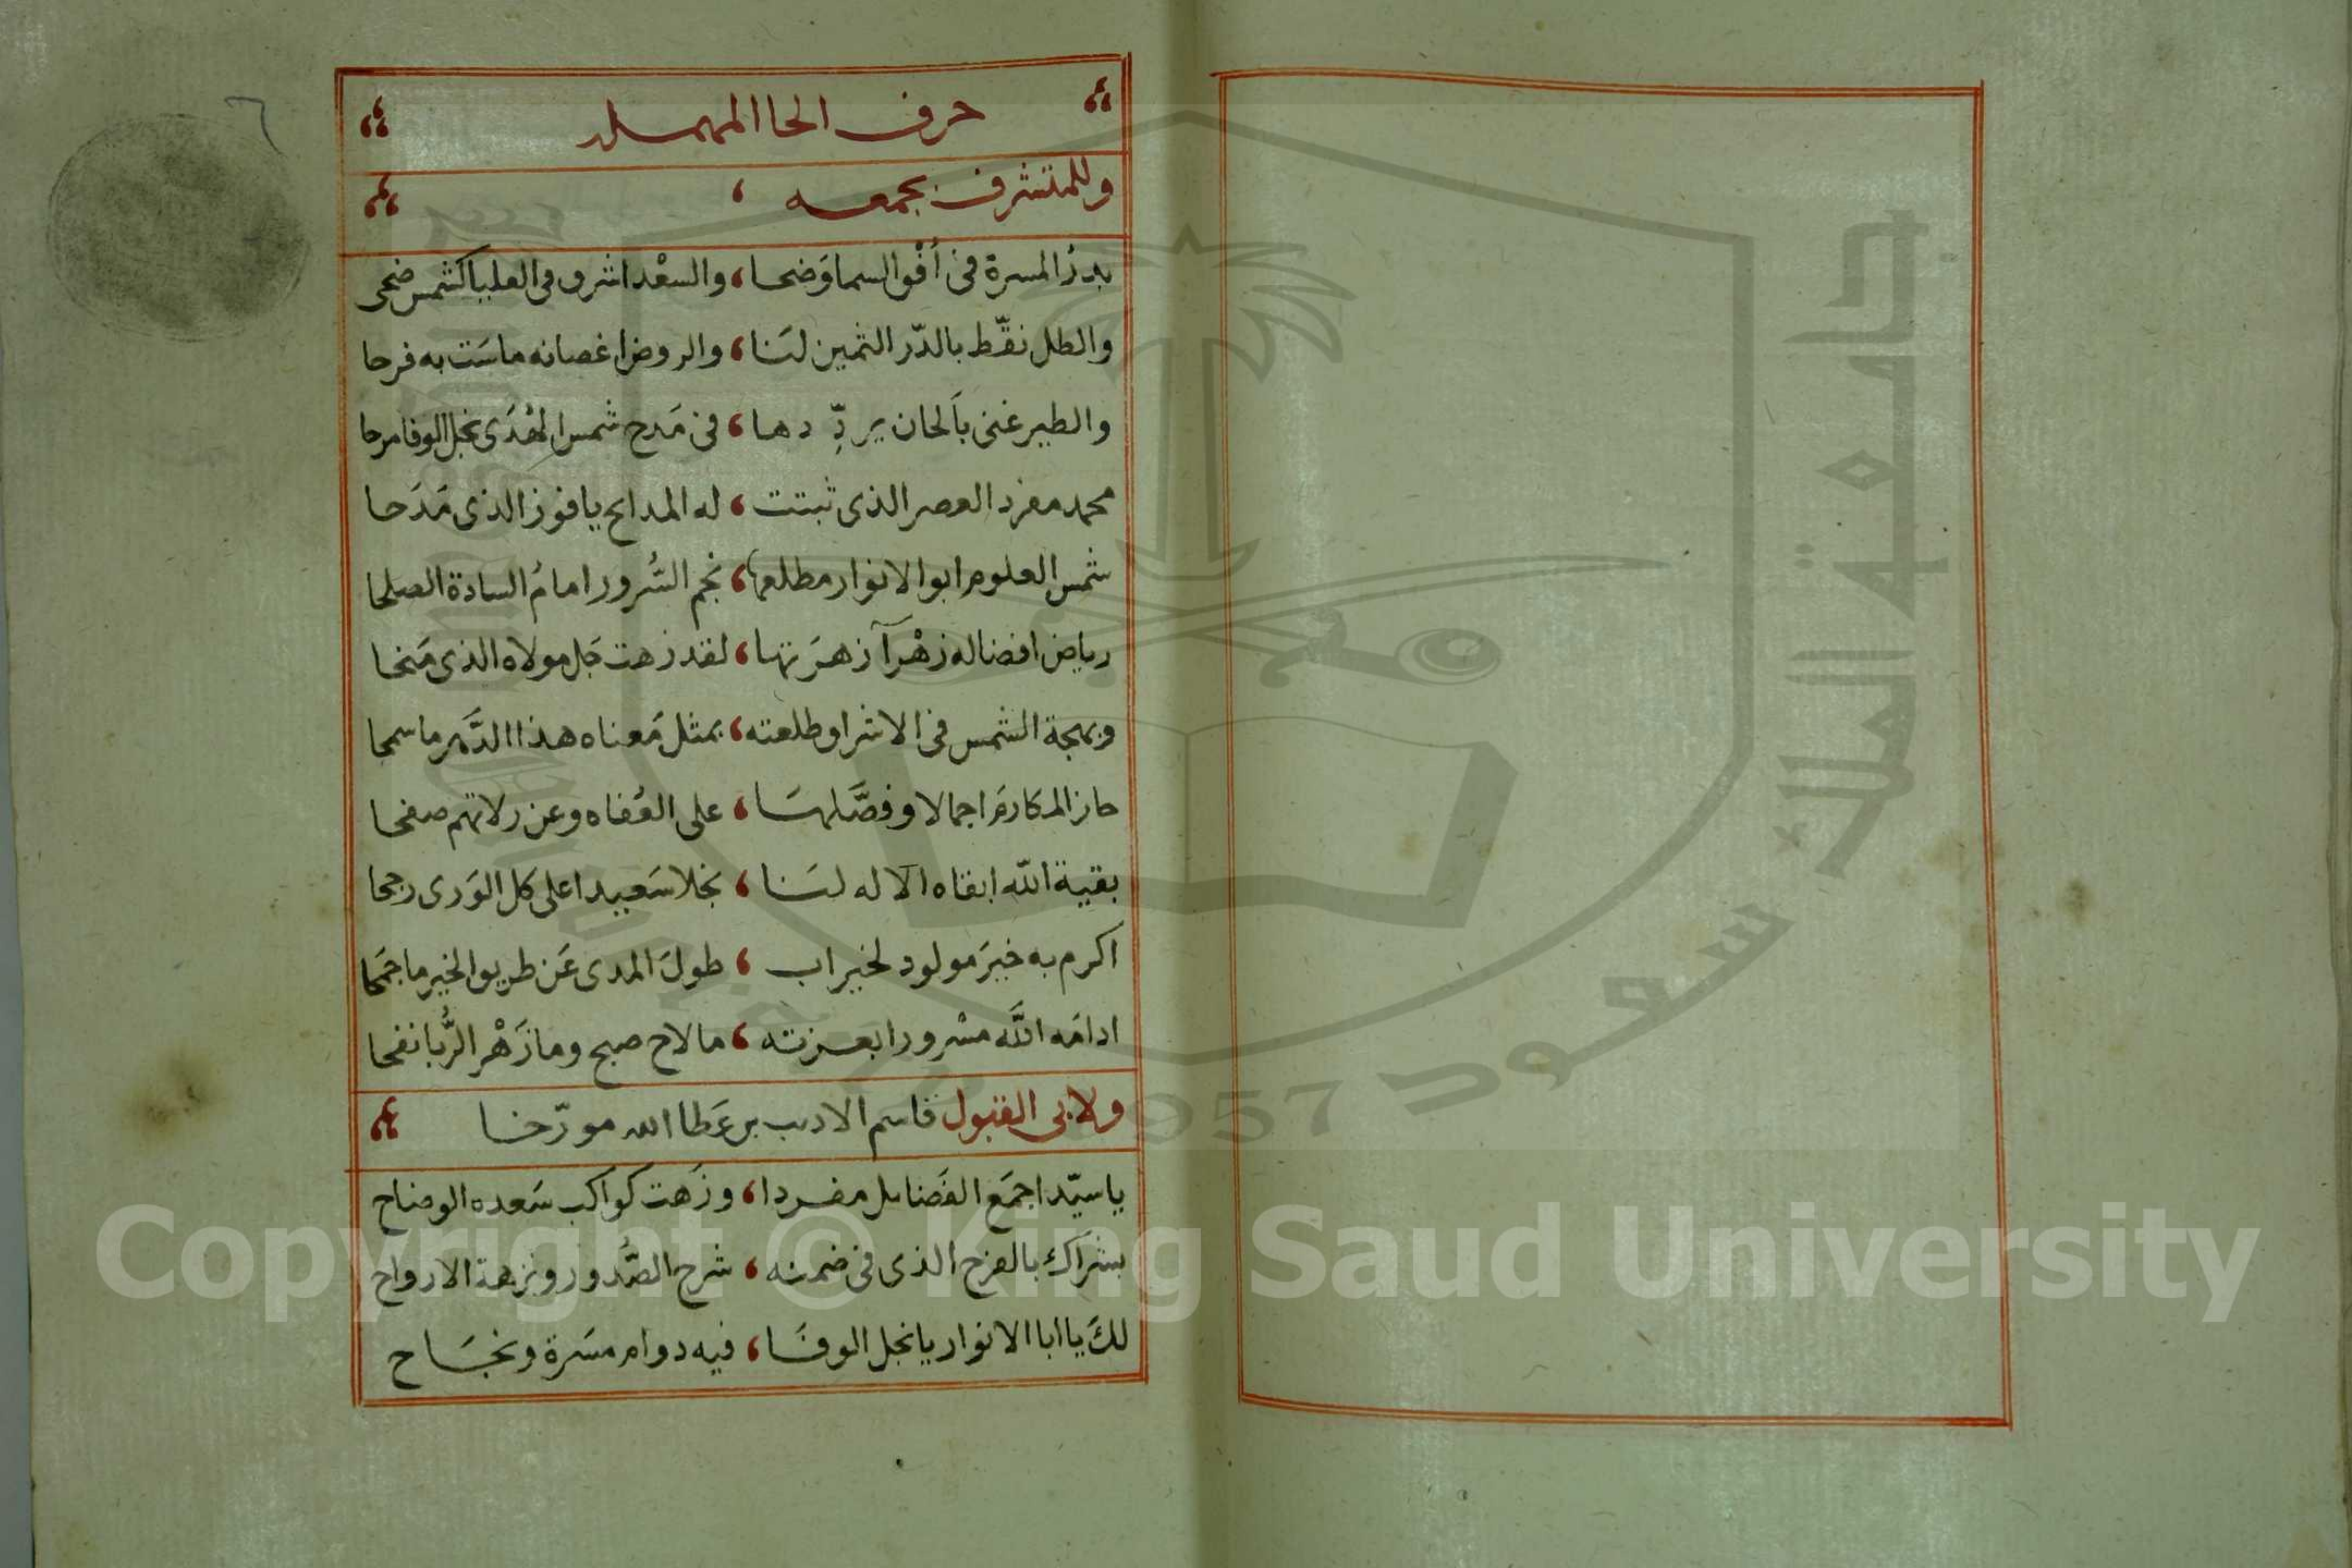 حرف الحا المهملہ
وللمتشرف بجمعه ،
بدرُ المسرة فى أفْق السما وَضحا ، والسعْد اشرق فى العليا كشمس ضحى
والطل نقّط بالدّر الثمين لنَا ، والروض اغصانه ماسَت به فرحا
والطير غنى بالحان يردِّدها ، فى مَدح شمس الهُدَى نجل الوفا مرحا
محمد مفرد العصر الذى ثبتت ، له المدايح يا فوز الذى مَدَحا
شمس العلوم ابوا الانوار مطلعها ، نجم السُّرور امامُ السادة الصلحا
رياض افضاله زهْرآ زهرَتها ، لقد زهت جَل مولاه الذى مَنحا
وبهجة الشمس فى الاشراق طلعته ، بمثل مَعناه هذا الدَّهر ما سمحا
حاز المكارمَ اجمالا وفصَّلهَا ، على العُفاه وعن زلاتهم صفحا
بقية الله ابقاه الاله لنَا ، نجلا سَعيدا على كل الوَرى رجحا
اكرم به خيرَ مولود لخير اب ، طولَ المدى عَن طريق الخير ما جمَحا
ادامَه اللَّه مسْرورا بعزته ، ما لاح صبح وما زَهْر الرُّبا نفحا
ولابى القبول قاسم الاديب بن عَطا الله مورّخا
يا سيّدا جمَع الفَضايل مفردا ، وزَهت كواكب سَعده الوضاح
بشرَاك بالفرح الذى فى ضمنه ، شرح الصُّدور ونزهة الارواح
لكَ يا ابا الانوار يا نجل الوفَا ، فيه دوام مسَرة ونجَاح
جامعة الملك سعود
1957
Copyright © King Saud University